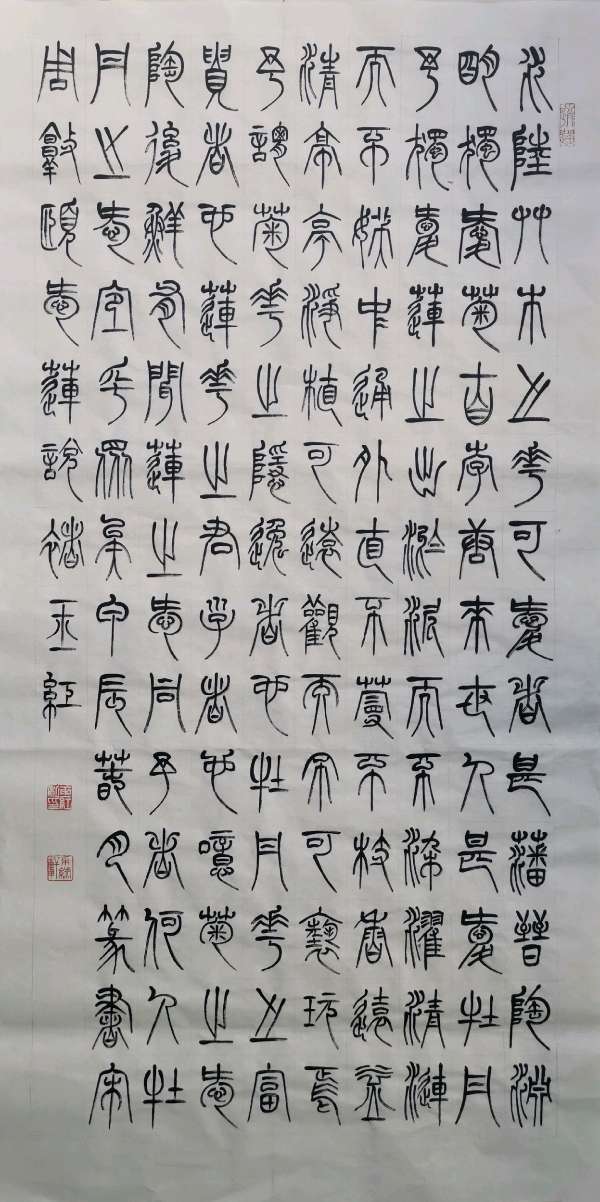 水陸艸木之花可愛者甚蕃晉陶淵
明獨愛菊自李唐來世人甚愛牡丹
予獨愛蓮之出淤泥而不染濯清漣
而不妖中通外直不蔓不枝香遠益
清亭亭淨植可遠觀而不可褻玩焉
予謂菊花之隱逸者也牡丹花之富
貴者也蓮花之君子者也噫菊之愛
陶後鮮有聞蓮之愛同予者何人牡
丹之愛宜乎眾矣甲辰春月篆書宋
周敦頤愛蓮說褚玉紅